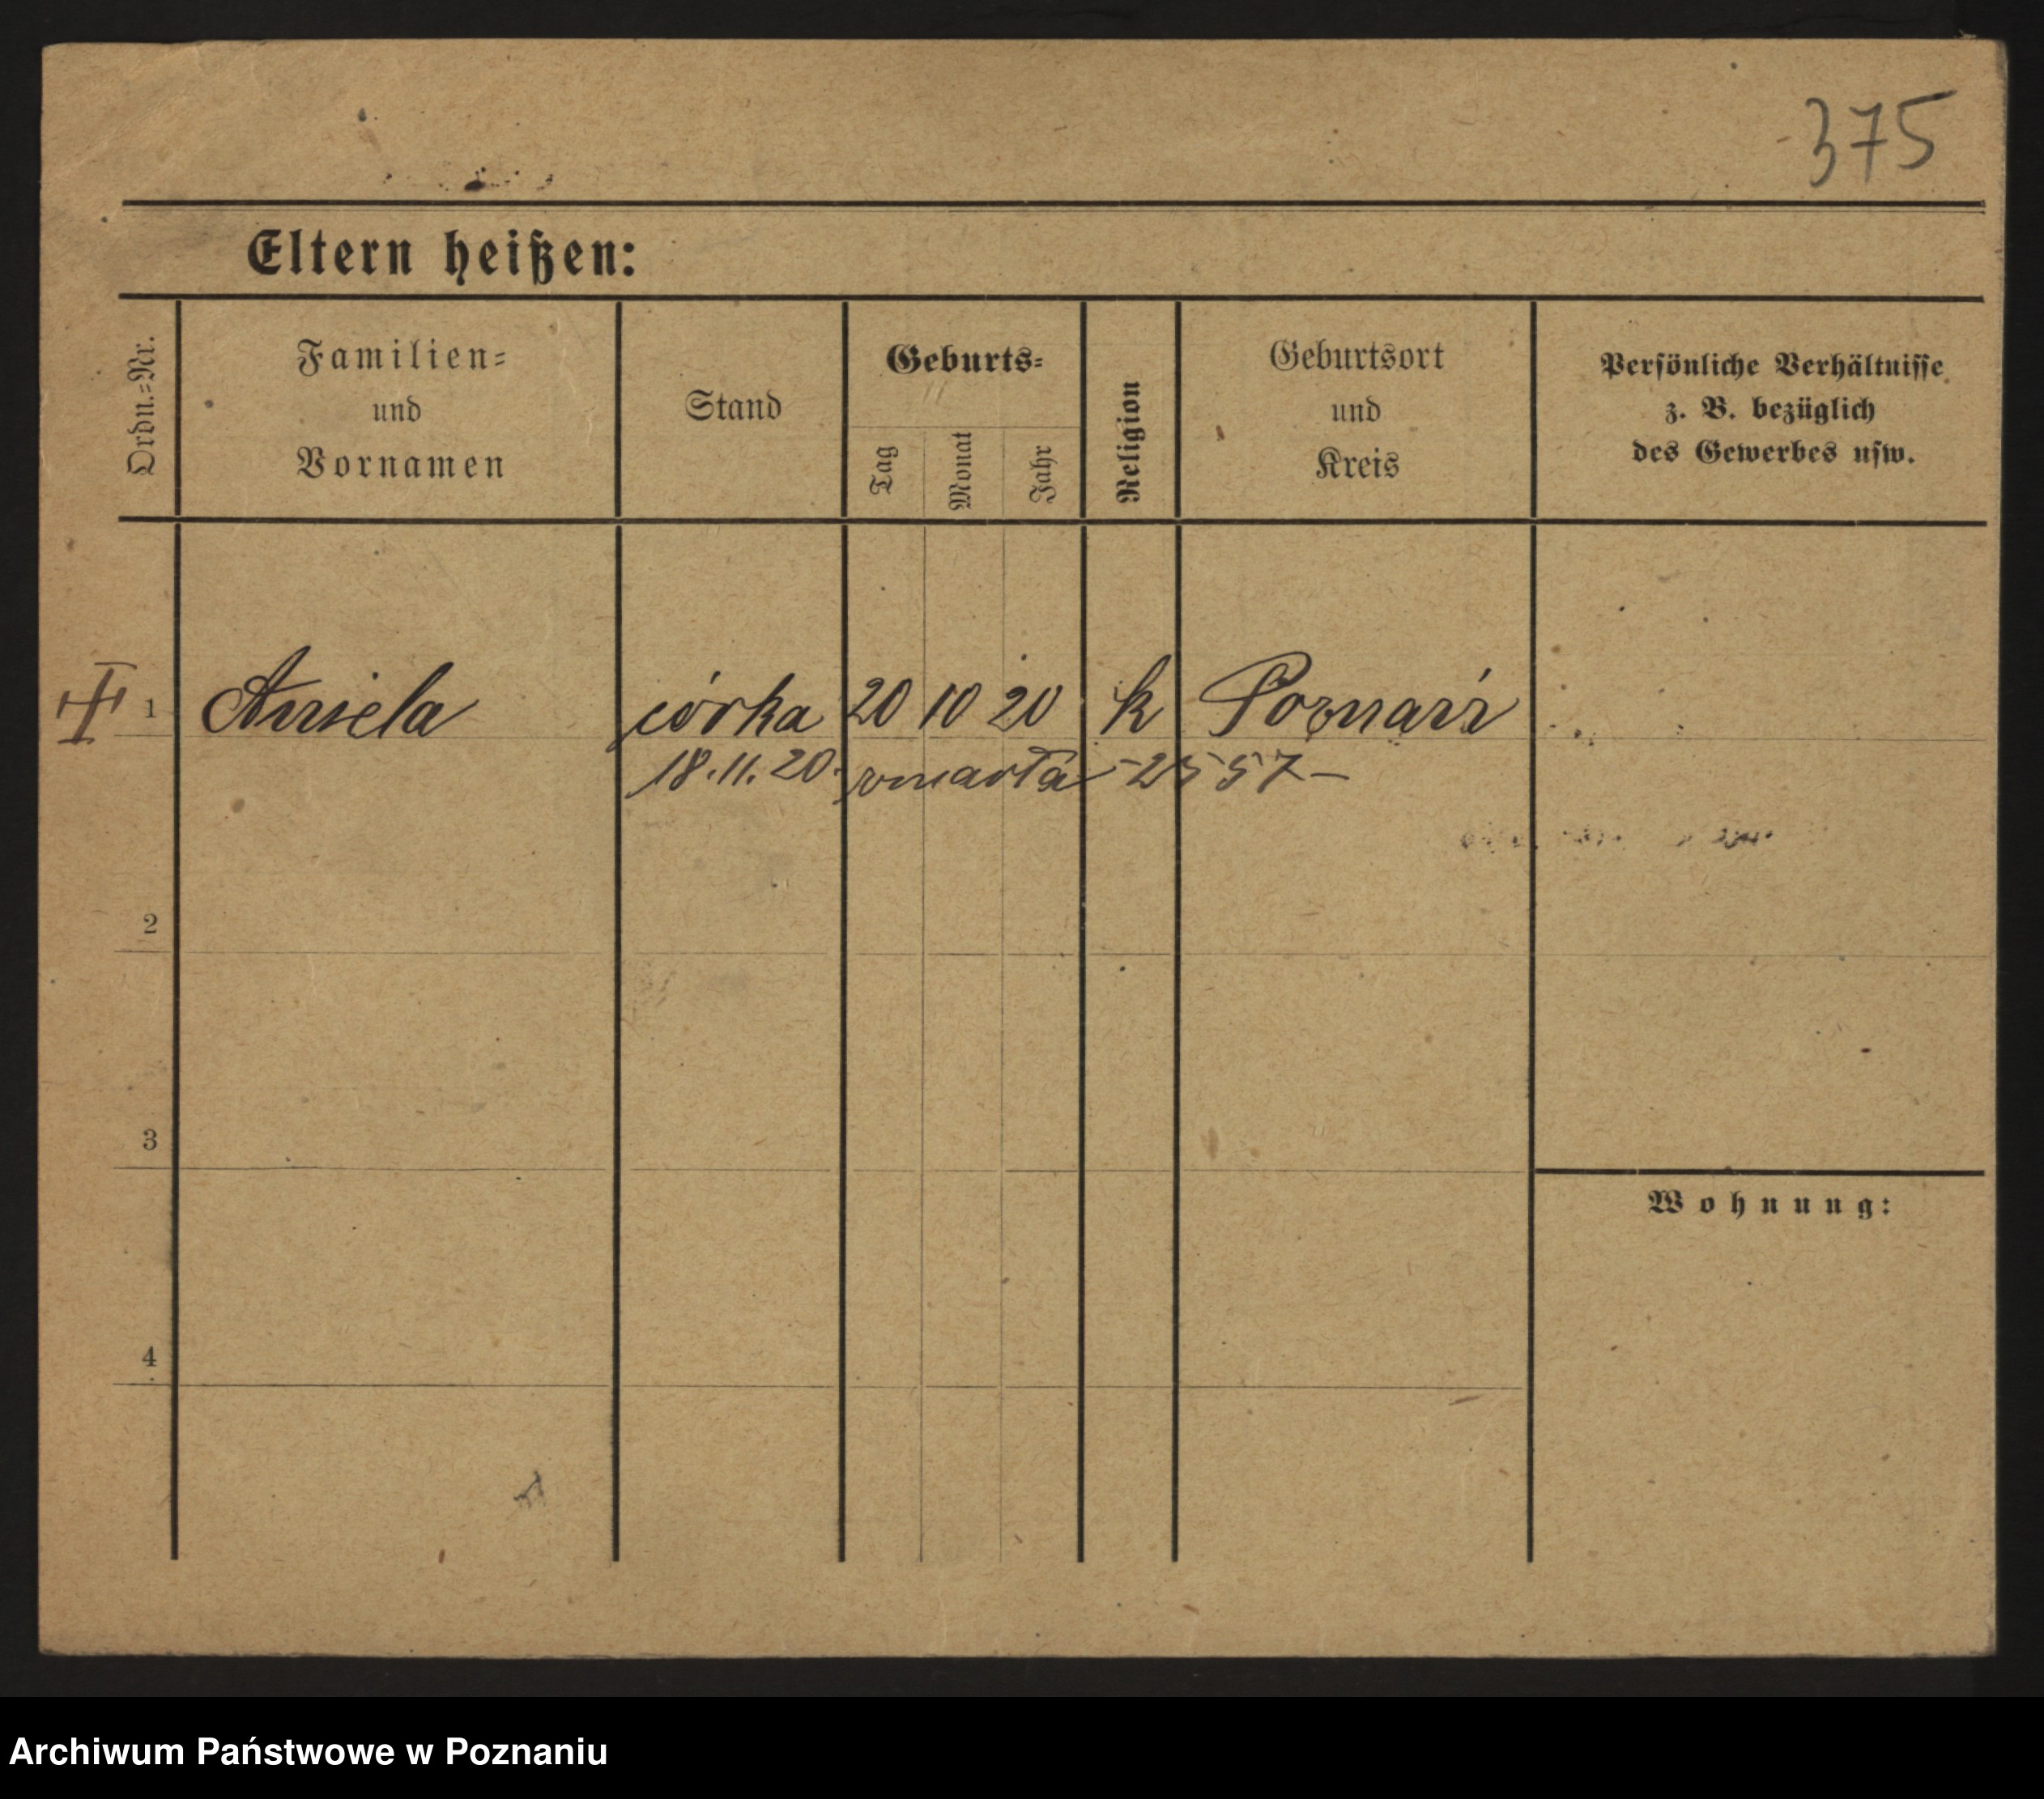 375
Eltern heißen:
Ordn.-Nr.
Familien-
und
Vornamen
Stand
Geburts-
Tag
Monat
Jahr
Religion
Geburtsort
und
Kreis
Persönliche Verhältnisse
z. B. bezüglich
des Gewerbes usw.
1 Aniela córka 20 10 20 k Poznań
18.11.20. zmarła - 2557 -
2
3
Wohnung:
4
Archiwum Państwowe w Poznaniu